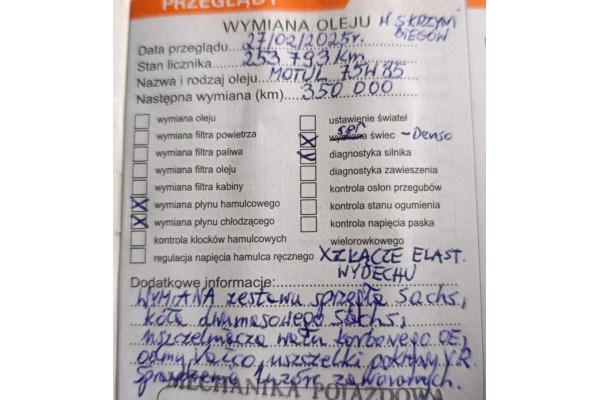 PRZEGLĄDY
WYMIANA OLEJU W SKRZYNI
BIEGÓW
Data przeglądu 27/02/2025r.
Stan licznika 253 793 km
Nazwa i rodzaj oleju MOTUL 75W85
Następna wymiana (km) 350 000
wymiana oleju
wymiana filtra powietrza
wymiana filtra paliwa
wymiana filtra oleju
wymiana filtra kabiny
X wymiana płynu hamulcowego
X wymiana płynu chłodzącego
kontrola klocków hamulcowych
regulacja napięcia hamulca ręcznego
ustawienie świateł
spr
X wymiana świec - Denso
X diagnostyka silnika
diagnostyka zawieszenia
kontrola osłon przegubów
kontrola stanu ogumienia
kontrola napięcia paska
wielorowkowego
X ZŁĄCZE ELAST.
WYDECHU
Dodatkowe informacje:
WYMIANA zestawu sprzęgła Sachs,
koła dwumasowego Sachs,
uszczelniacza wału korbowego OE,
odmy Vaico, uszczelki pokrywy
Sprawdzenie luzów zaworowych.
MECHANIKA POJAZDOWA